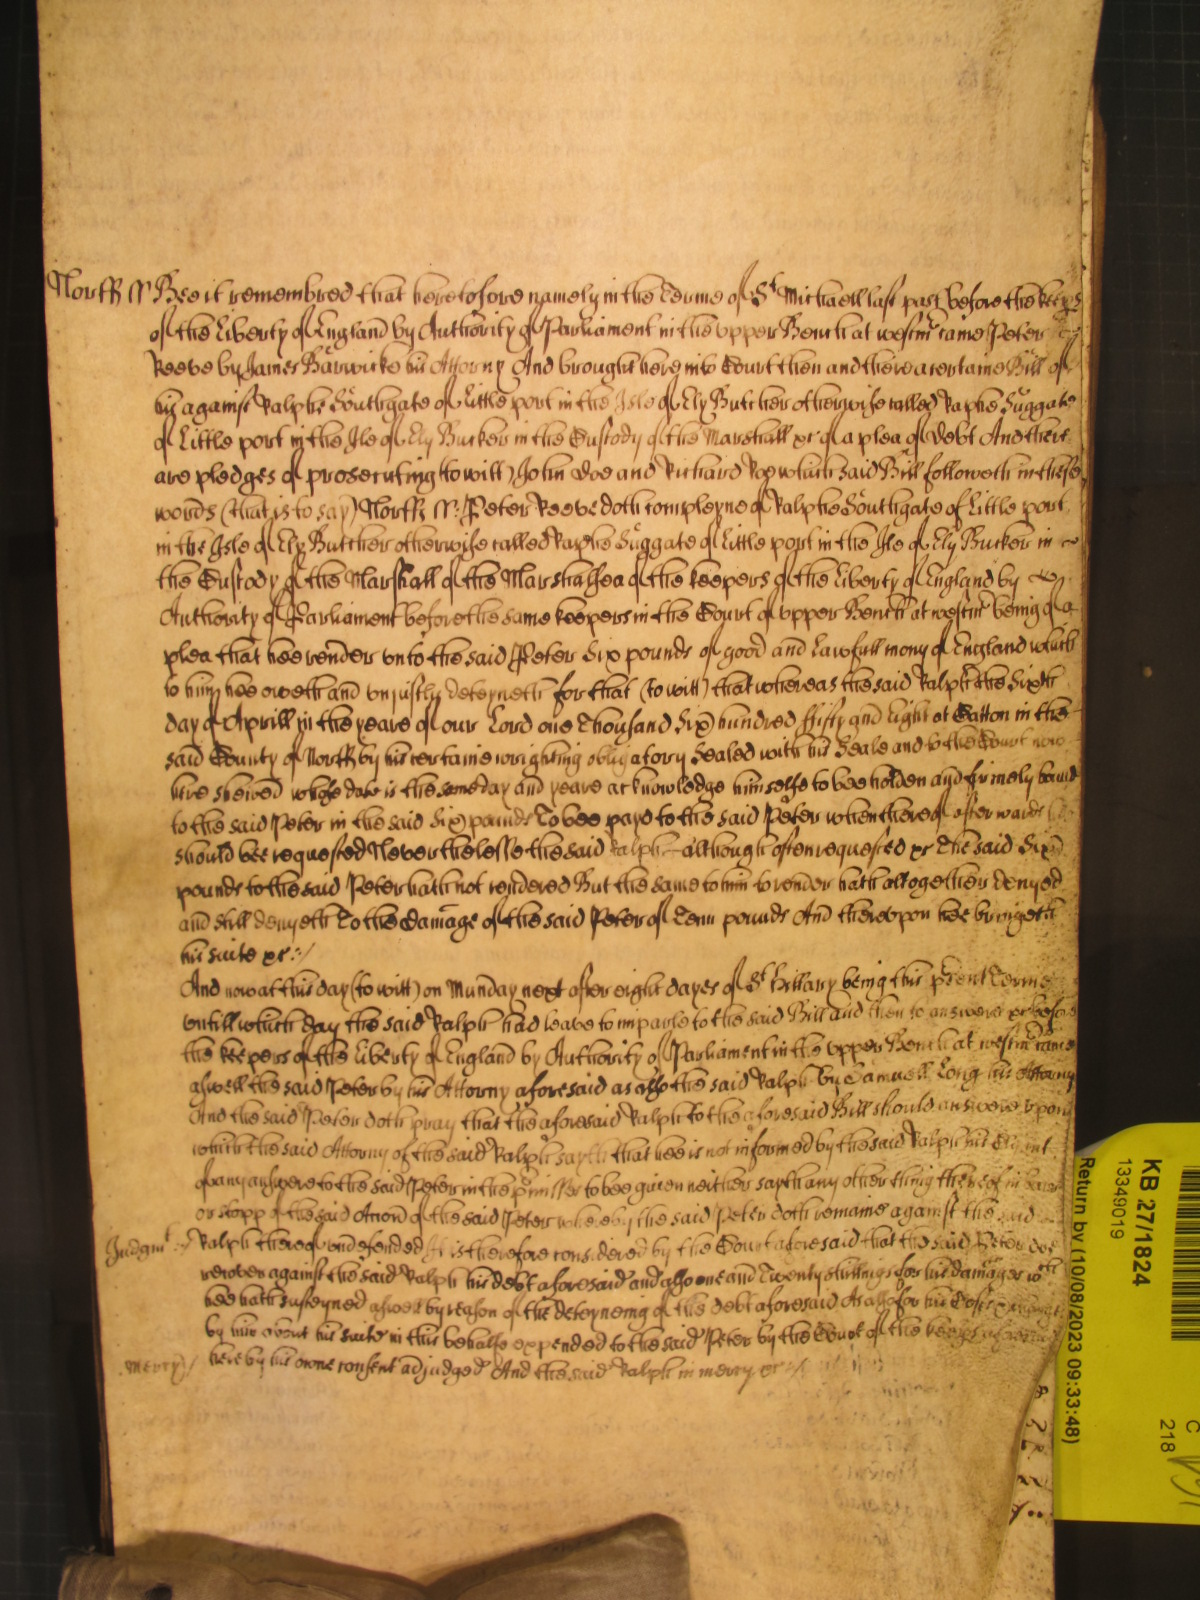 Norff ss Bee it remembred that heretofore namely in the Terme of St Michaell last past before the keeps
of the Liberty of England by Authority of Parliament in the upper Bench at westmr came Peter
Reeve by James Barwicke his Attorny And brought here into Court then and there a certaine Bill of
his against Ralphe Southgate of Little port in the Isle of Ely Butcher otherwise called Raphe Suggate
of Little port in the Ile of Ely Bucker in the Custody of the Marshall &c of a plea of debt And there
are pledges of prosecuting (to witt) John Doe and Richard Roe which said Bill followeth in these
words (that is to say) Norff ss: Peter Reeve doth compleyne of Ralphe Southgate of Little port
in the Isle of Ely Buttcher otherwise called Raphe Suggate of Little port in the Ile of Ely Bucker in
the Custody of the Marshall of the Marshalsea of the keepers of the Liberty of England by
Authority of Parliament before the same keepers in the Court of upper Bench at westmr being of a
plea that hee render unto the said Peter Six pounds of good and Lawfull mony of England which
to him hee oweth and unjustly deteyneth for that (to witt) that whereas the said Ralph the Sixth
day of Aprill in the yeare of our Lord one Thousand Six hundred ffifty and Eight at Catton in the
said County of Norff by his certaine wrighting obligatory Sealed with his Seale and to the Court now
here shewed whose date is the same day and yeare acknowledge himselfe to bee holden and firmely bound
to the said Peter in the said Six pounds To bee payd to the said Peter when thereof afterwards
should bee requested Neverthelesse the said Ralph although often requested &c The said Six
pounds to the said Peter hath not rendered But the same to him to render hath alltogether denyed
and still denyeth To the damage of the said Peter of Tenn pounds And thereupon hee bringeth
his suite &c:/
And now at this day (to witt) on Munday next after eight dayes of St Hillary being this psent Terme
untill which day the said Ralph had leave to imparle to the said Bill and then to answere &c before
the keepers of the Liberty of England by Authority of Parliament in the upper Bench at westmr came
aswell the said Peter by his Attorny aforesaid as also the said Ralph by Samuell Long his Attorny
And the said Peter doth pray that the aforesaid Ralph to the aforesaid Bill should answere upon
which the said Attorny of the said Ralph sayth that hee is not informed by the said Ralph his Clyent
of any answere to the said Peter in the pmisses to bee given neither sayth any other thing thereof in barr
or stopp of the said Accon of the said Peter whereby the said Peter doth remaine against the said
Judgmt Ralph thereof undefended It is therefore considered by the Court aforesaid that the said Peter doe
recover against the said Ralph his debt aforesaid and also one and Twenty shillings for his damages wch
hee hath susteyned aswell by reason of the deteyneing of this debt aforesaid As also for his Costs
by him about his suite in this behalfe expended to the said Peter by the Court of the keeps aforesaid
mercy/ here by his owne consent adjudged And the said Ralph in mercy &c
KB 27/1824
13349019
Return by (10/08/2023 09:33:48)
C
218